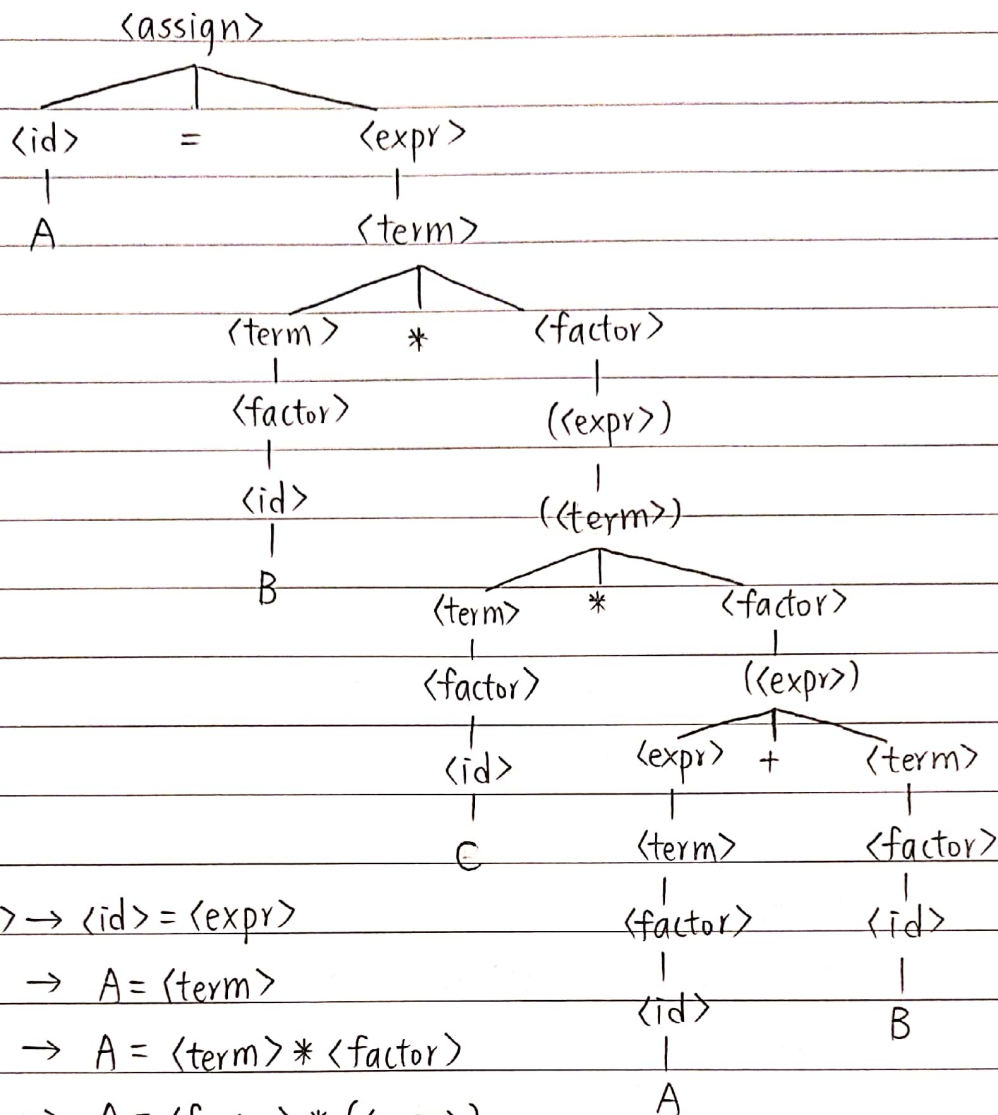 <assign>
<id> = <expr>
A <term>
<term> * <factor>
<factor> (<expr>)
<id> (<term>)
B <term> * <factor>
<factor> (<expr>)
<id> <expr> + <term>
C <term> <factor>
> → <id> = <expr> <factor> <id>
→ A = <term> <id> B
→ A = <term> * <factor> A